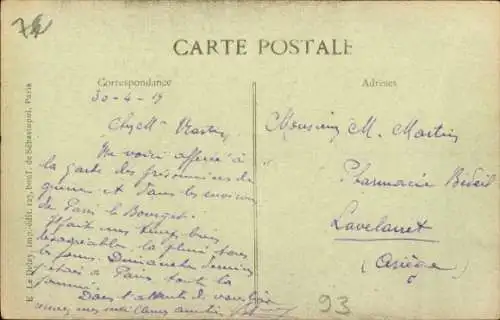 CARTE POSTALE
Correspondance
Adresse
E. Le Deley, imp.-édit. 127, boul. de Sébastopol, Paris
30-4-19
Cher Mr Martin
Me voici affecté à
la garde des prisonniers de
guerre et dans les environs
de Paris le Bourget.
Il fait un temps bien
désagréable, la pluie tous
les jours. Dimanche dernier
j'étais à Paris toute la
journée
Dans l'attente de vous lire
Monsieur M. Martin
Pharmacie
Lavelanet
(Ariège)
93